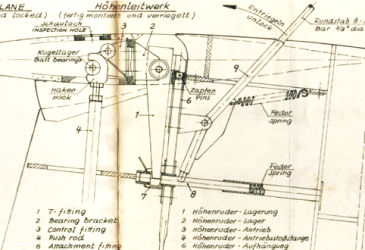 PLANE Höhenleitwerk
d locked) (fertig montiert und verriegelt)
Schauloch
INSPECTION HOLE
Entriegeln
unlock
Rundstab 8
Bar 3/8" dia
Kugellager
Ball bearings
Haken
Hook
Zapfen
Pins
Feder
Spring
Feder
Spring
3
2
9
1
6
4
5
7
8
1 T-fitting
2 Bearing bracket
3 Control fitting
4 Push rod
6 Attachment fitting
1 Höhenruder-Lagerung
2 Höhenruder-Lager
3 Höhenruder-Antrieb
4 Höhenruder-Antriebstoßstange
6 Höhenruder-Aufhängung